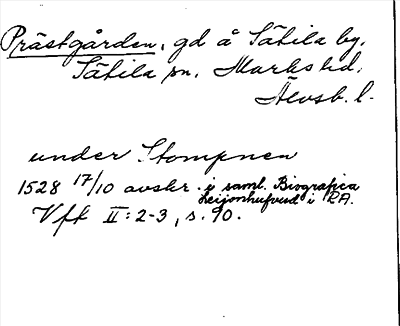 Prästgården, gd å Sätila by,
Sätila sn. Marks hd.
Älvsb. l.
under Stompnen
1528 17/10 avskr. i saml. Biografica
Leijonhufvud i RA.
Vft II: 2-3, s. 90.